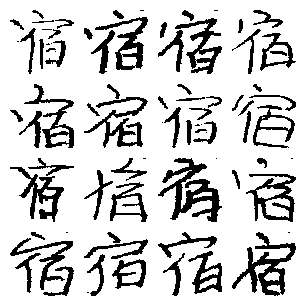 宿宿宿宿
宿宿宿宿
宿宿宿宿
宿宿宿宿